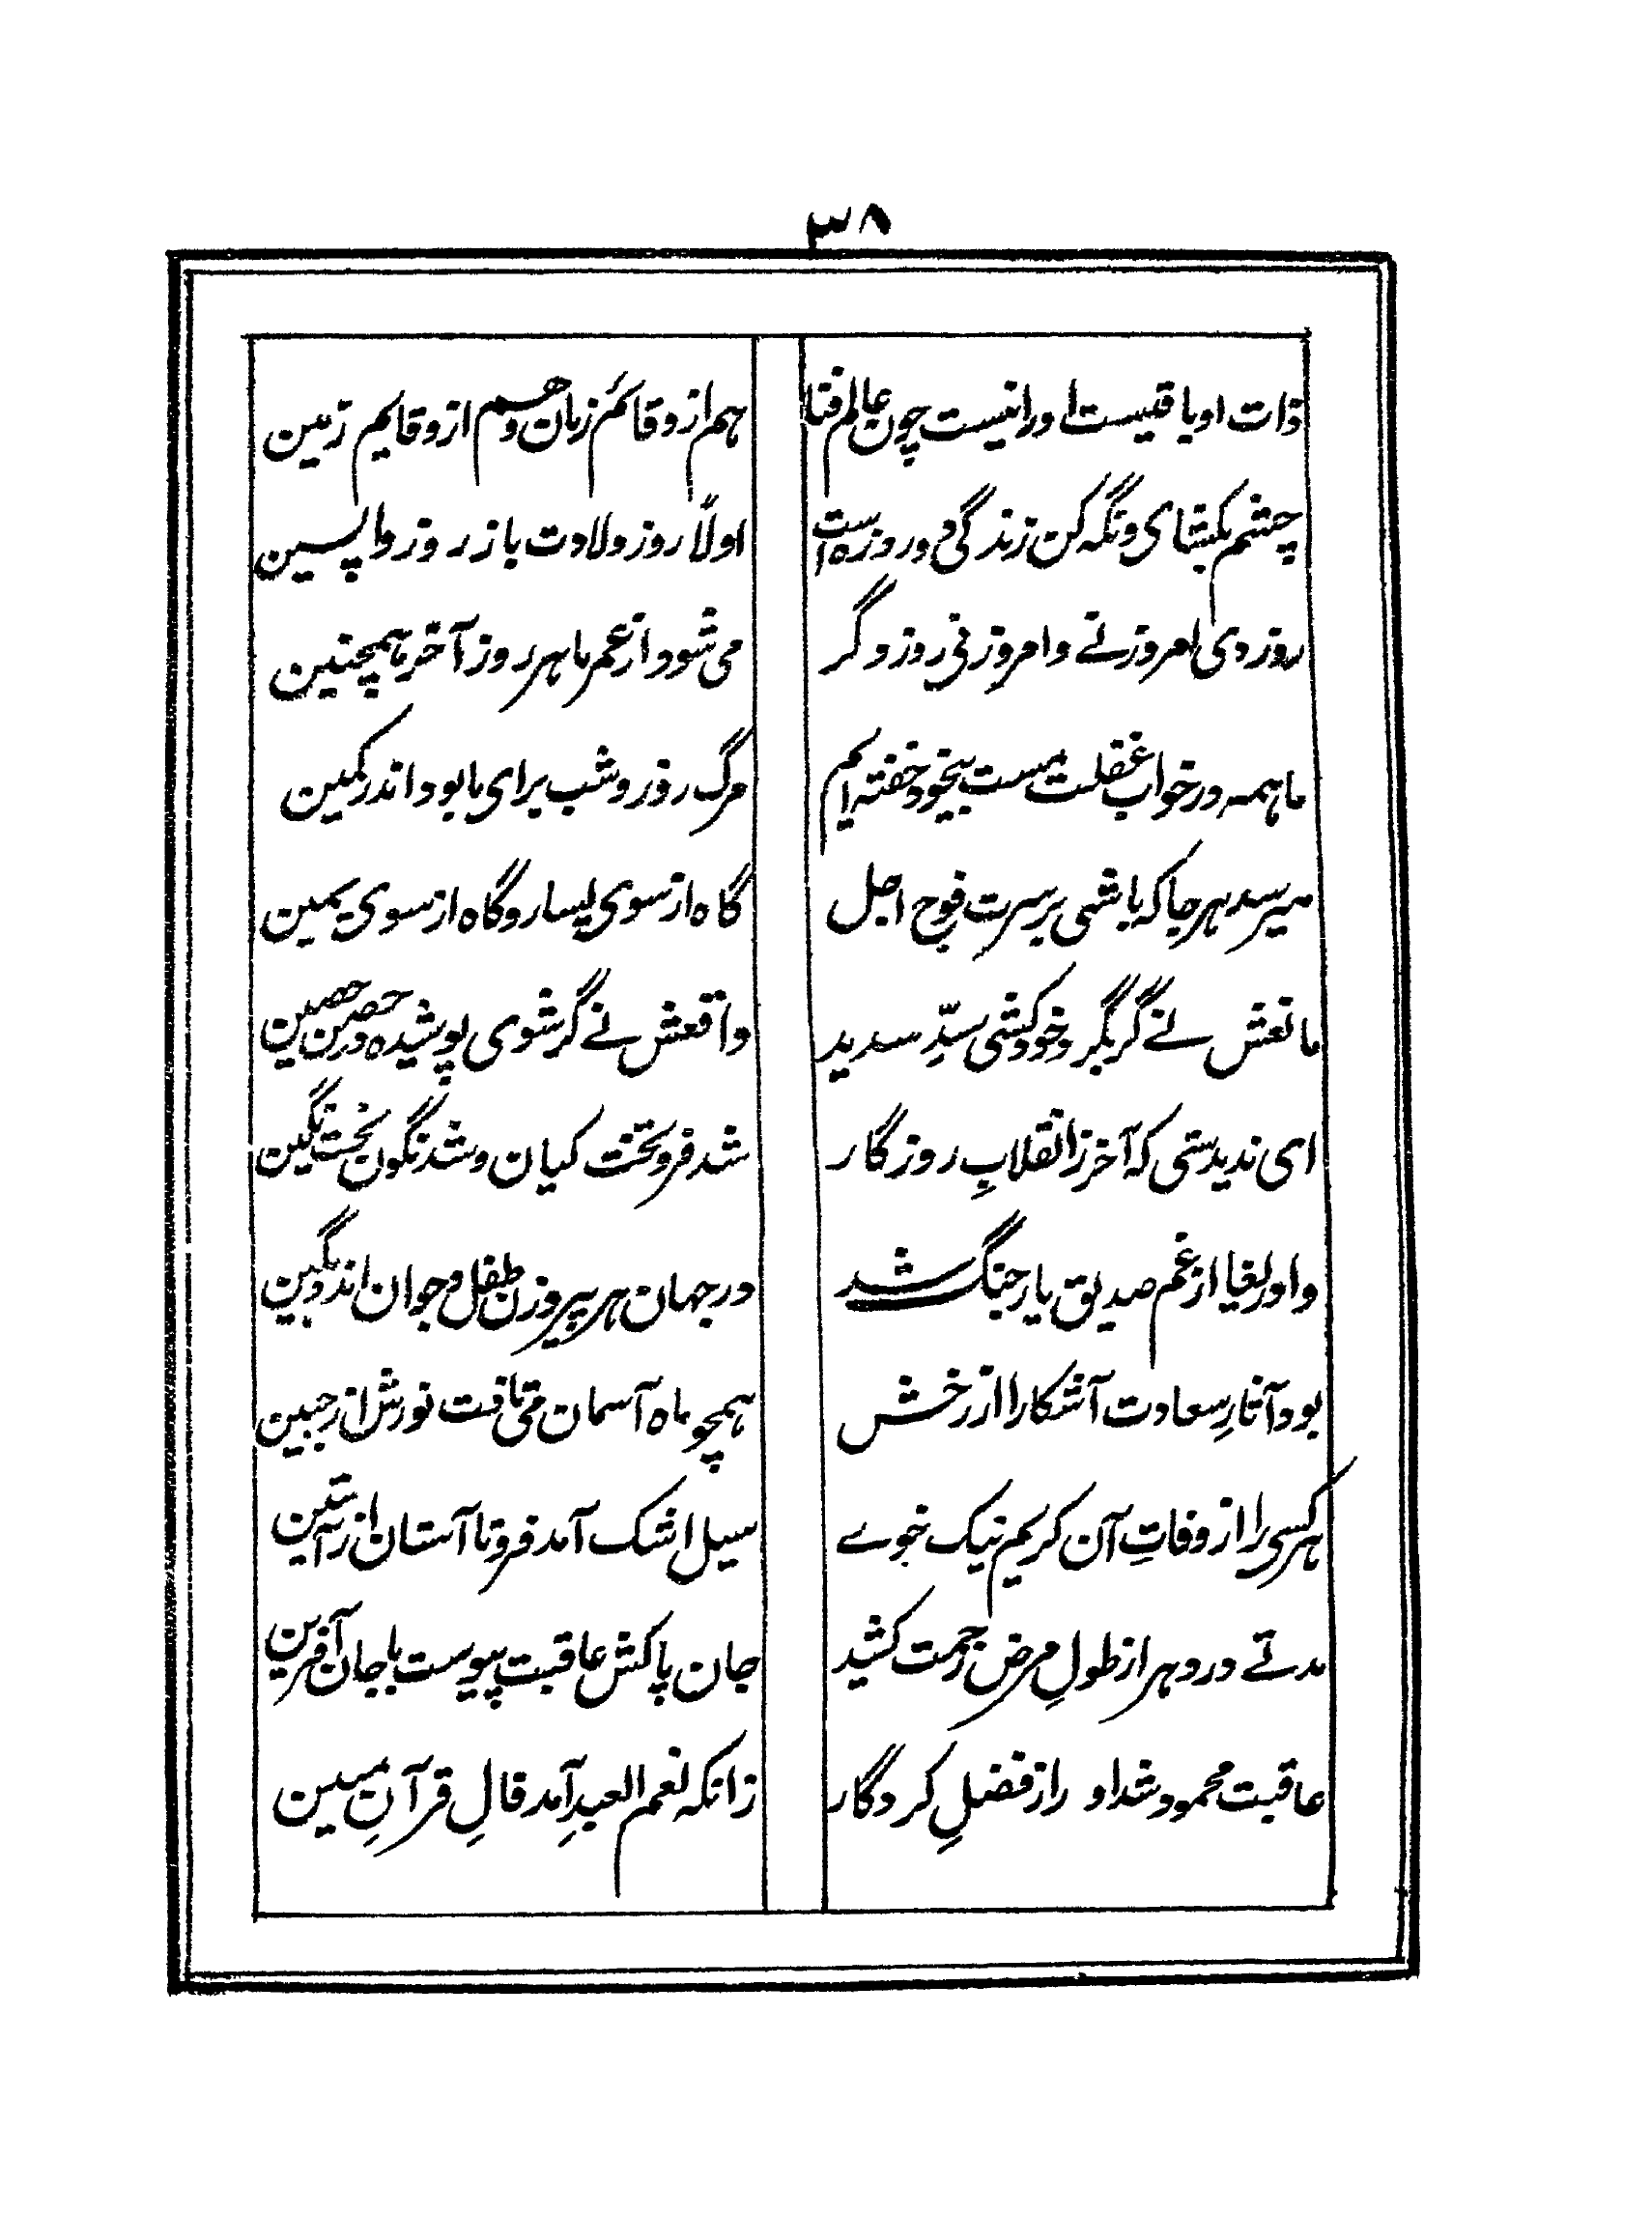 ۳۸
ذات او باقیست او را نیست چون عالم فنا
هم ازو قائم زمان و هم ازو قایم زمین
چشم بکشای و نگه کن زندگی دو روزه است
اولاً روز ولادت باز روز واپسین
روز دی امروز نے و امروز نی روز دگر
می شود از عمر ما هر روز آخر همچنین
ما همه در خواب غفلت مست بیخود خفته ایم
مرگ روز و شب برای ما بود اندر کمین
میرسد هر جا که باشی بر سرت فوج اجل
گاه از سوی یسار و گاه از سوی یمین
مانعش نے گر بگرد خود کشی سدِّ سدید
دافعش نے گر شوی پوشیده در حصن حصین
ای ندیدستی که آخر ز انقلابِ روزگار
شد فرو تخت کیان و شد نگون تخت تگین
وا دریغا از غم صدیق یار جنگ شد
در جهان هر پیر و زن طفل و جوان اندوهگین
بود آثارِ سعادت آشکارا از رخش
همچو ماه آسمان می تافت نورش از جبین
هر کسی را از وفاتِ آن کریم نیک خوے
سیل اشک آمد فرو تا آستان از آستین
مدتے در دهر از طولِ مرض زحمت کشید
جان پاکش عاقبت پیوست با جان آفرین
عاقبت محمود شد او را ز فضلِ کردگار
زانکه نعم العبدِ آمد قالِ قرآنِ مبین